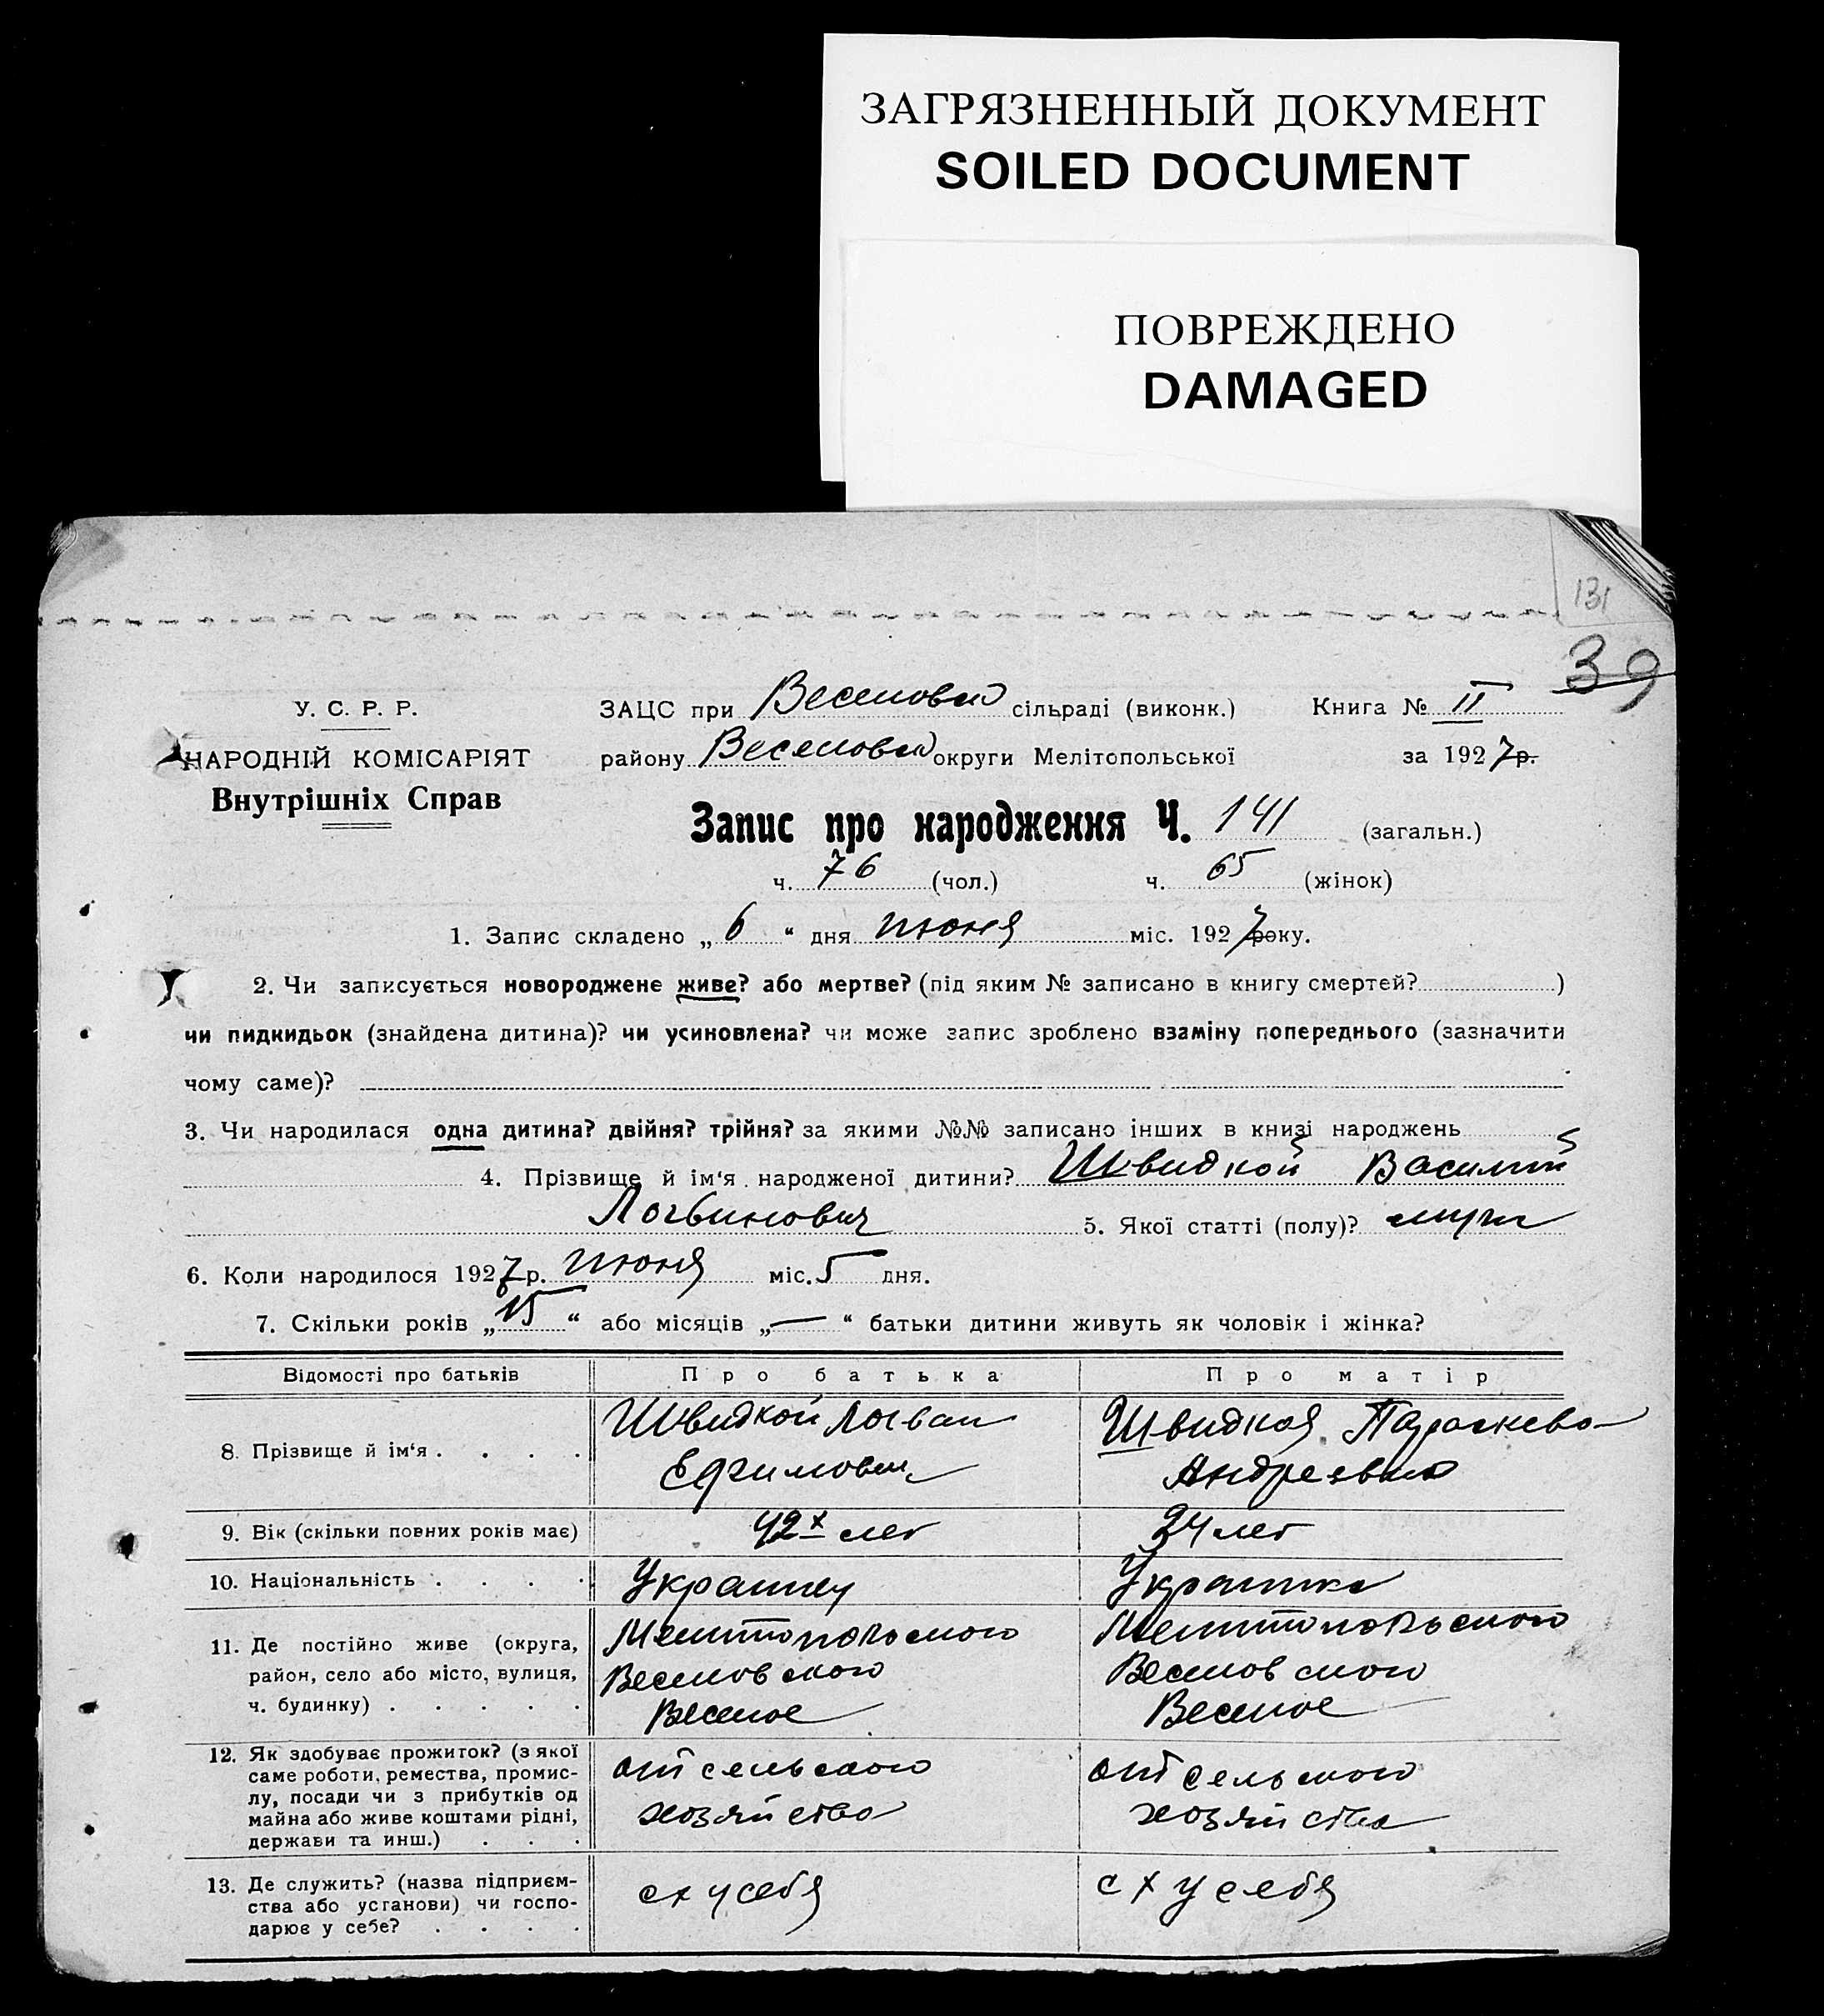 ЗАГРЯЗНЕННЫЙ ДОКУМЕНТ
SOILED DOCUMENT
ПОВРЕЖДЕНО
DAMAGED
131
39
У. С. Р. Р.
НАРОДНІЙ КОМІСАРІЯТ
Внутрішніх Справ
ЗАЦС при Веселовско сільраді (виконк.) Книга № II
району Веселовско округи Мелітопольської за 1927 р.
Запис про народження Ч. 141 (загальн.)
ч. 76 (чол.) ч. 65 (жінок)
1. Запис складено „ 6 “ дня июня міс. 1927 року.
2. Чи записується новороджене живе? або мертве? (під яким № записано в книгу смертей? )
чи пидкидьок (знайдена дитина)? чи усиновлена? чи може запис зроблено взаміну попереднього (зазначити
чому саме)?
3. Чи народилася одна дитина? двійня? трійня? за якими №№ записано інших в книзі народжень
4. Прізвище й ім‘я народженої дитини? Швидкой Василий
Логвинович 5. Якої статті (полу)? муж
6. Коли народилося 1927 р. июня міс. 5 дня.
7. Скільки років „ 15 “ або місяців „ — “ батьки дитини живуть як чоловік і жінка?
Відомості про батьків Про батька Про матір
8. Прізвище й ім‘я . . . . Швидкой Логван Швидкая Параскева
Ефимович Андреевна
9. Вік (скільки повних років має) 42х лет 34 лет
10. Національність . . . . Украинец Украинка
11. Де постійно живе (округа, Мелитопольского Мелитопольского
район, село або місто, вулиця, Веселовского Веселовского
ч. будинку) . . . . . Веселое Веселое
12. Як здобуває прожиток? (з якої
саме роботи, ремества, промис- от сельского от сельского
лу, посади чи з прибутків од
майна або живе коштами рідні, хозяйства хозяйства
держави та инш.) . . .
13. Де служить? (назва підприєм-
ства або установи) чи госпо- с х у себя с х у себя
дарює у себе? . . . .